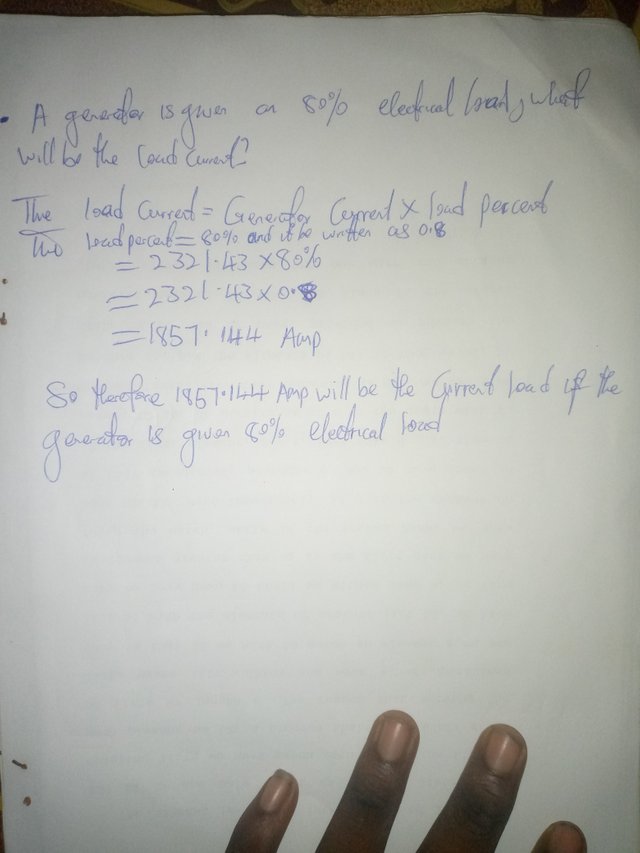 • A generator is given an 80% electrical load, what
will be the load current?
The load current = Generator Current × load percent
The load percent = 80% and it be written as 0.8
= 2321.43 × 80%
= 2321.43 × 0.8
= 1857.144 Amp
So therefore 1857.144 Amp will be the Current load if the
generator is given 80% electrical load